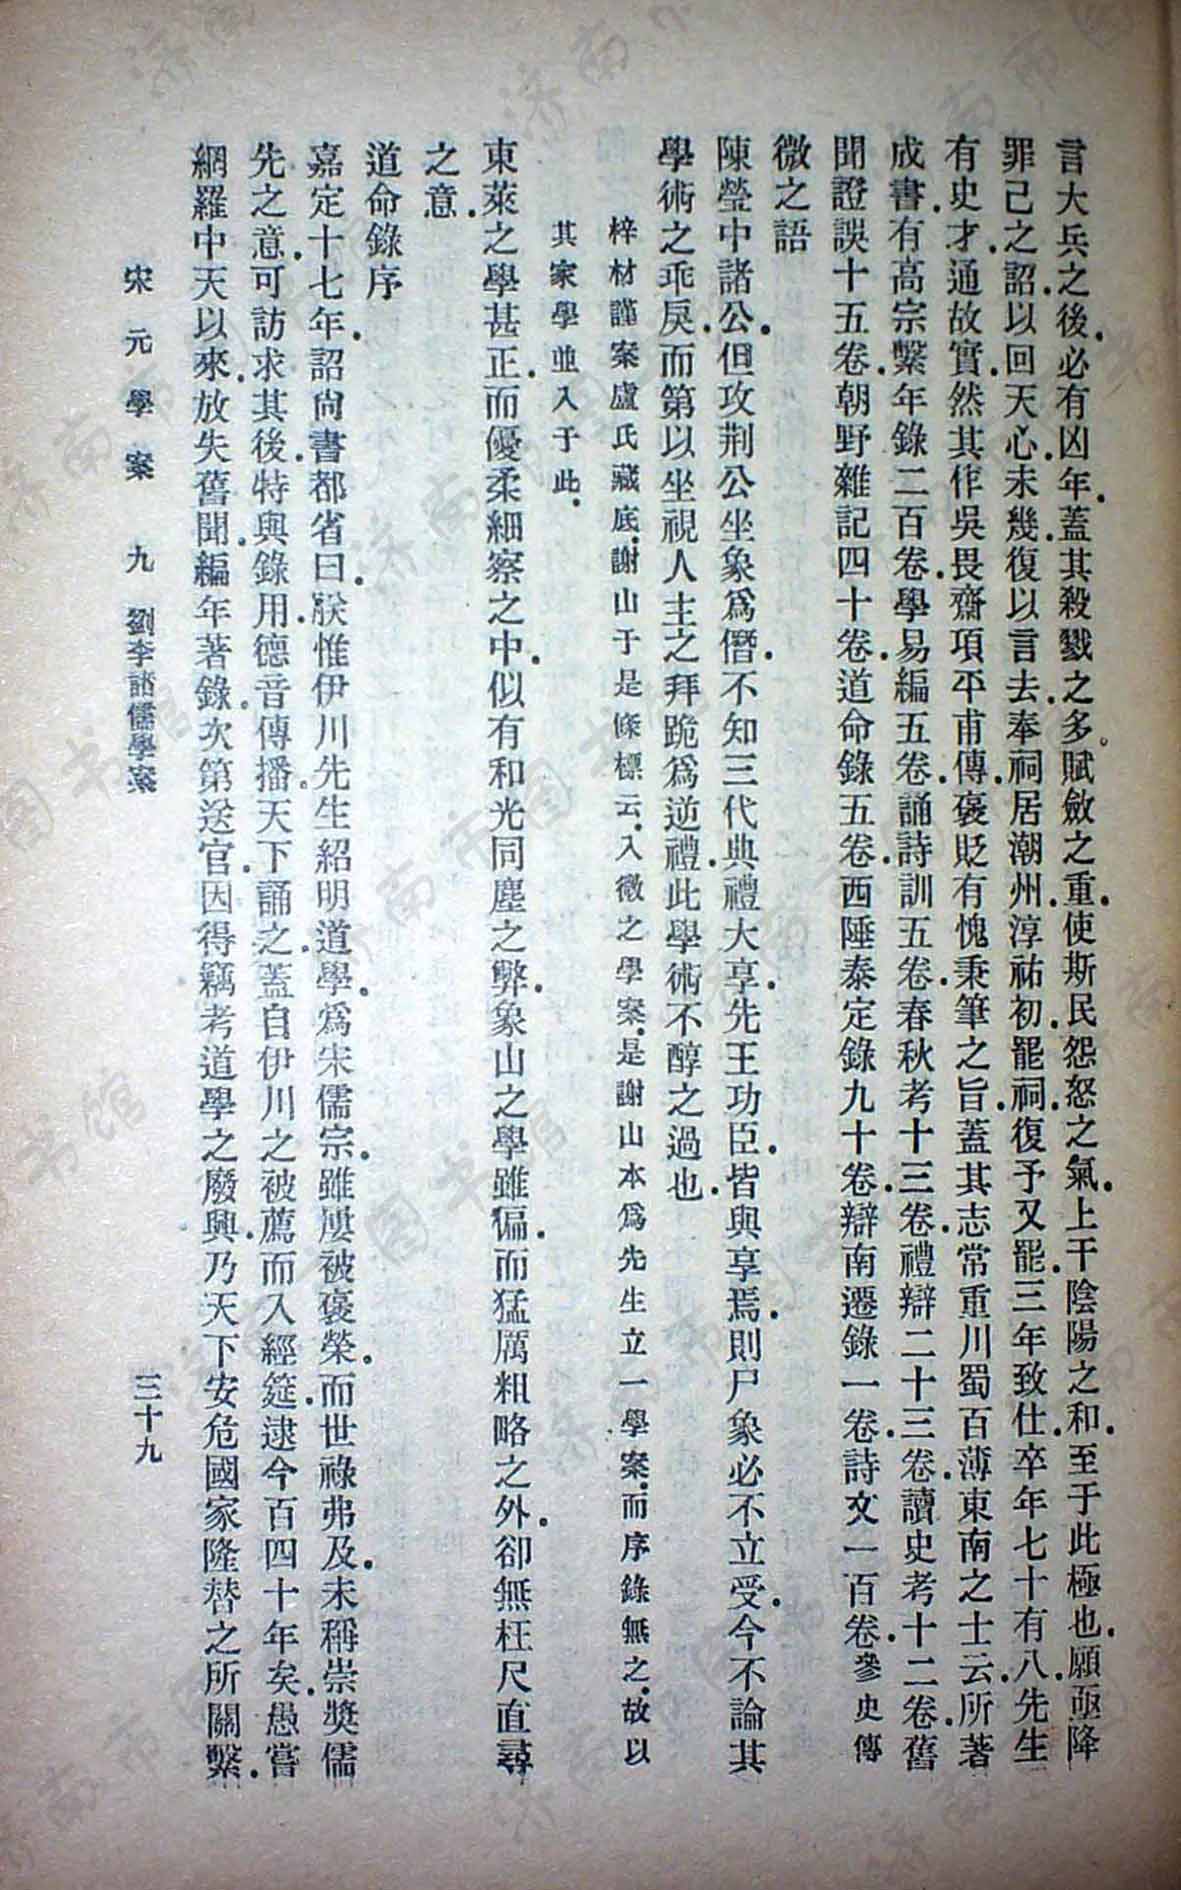 言大兵之後.必有凶年.蓋其殺戮之多。賦斂之重.使斯民怨怒之氣.上干陰陽之和.至于此極也.願亟降
罪己之詔.以回天心.未幾.復以言去.奉祠居潮州.淳祐初.罷祠.復予.又罷.三年致仕.卒年七十有八.先生
有史才.通故實.然其作吳畏齋項平甫傳.褒貶有愧秉筆之旨.蓋其志常重川蜀.百薄東南之士云.所著
成書.有高宗繫年錄二百卷.學易編五卷.誦詩訓五卷.春秋考十三卷.禮辯二十三卷.讀史考十二卷.舊
聞證誤十五卷.朝野雜記四十卷.道命錄五卷.西陲泰定錄九十卷.辯南遷錄一卷.詩文一百卷.參史傳
微之語
陳瑩中諸公.但攻荆公坐象爲僭.不知三代典禮大享.先王功臣.皆與享焉.則尸象必不立受.今不論其
學術之乖戾.而第以坐視人主之拜跪爲逆禮.此學術不醇之過也.
梓材謹案盧氏藏底.謝山于是條標云.入微之學案.是謝山本爲先生立一學案.而序錄無之.故以
其家學並入于此.
東萊之學甚正.而優柔細察之中.似有和光同塵之弊.象山之學雖偏.而猛厲粗略之外.卻無枉尺直尋
之意.
道命錄序
嘉定十七年.詔尙書都省曰.朕惟伊川先生紹明道學.爲宋儒宗.雖屢被褒榮.而世祿弗及.未稱崇獎儒
先之意.可訪求其後.特與錄用.德音傳播。天下誦之.蓋自伊川之被薦而入經筵.逮今百四十年矣.愚嘗
網羅中天以來.放失舊聞.編年著錄.次第送官.因得竊考道學之廢興.乃天下安危國家隆替之所關繫.
宋元學案 九 劉李諸儒學案 三十九
濟南市图书馆